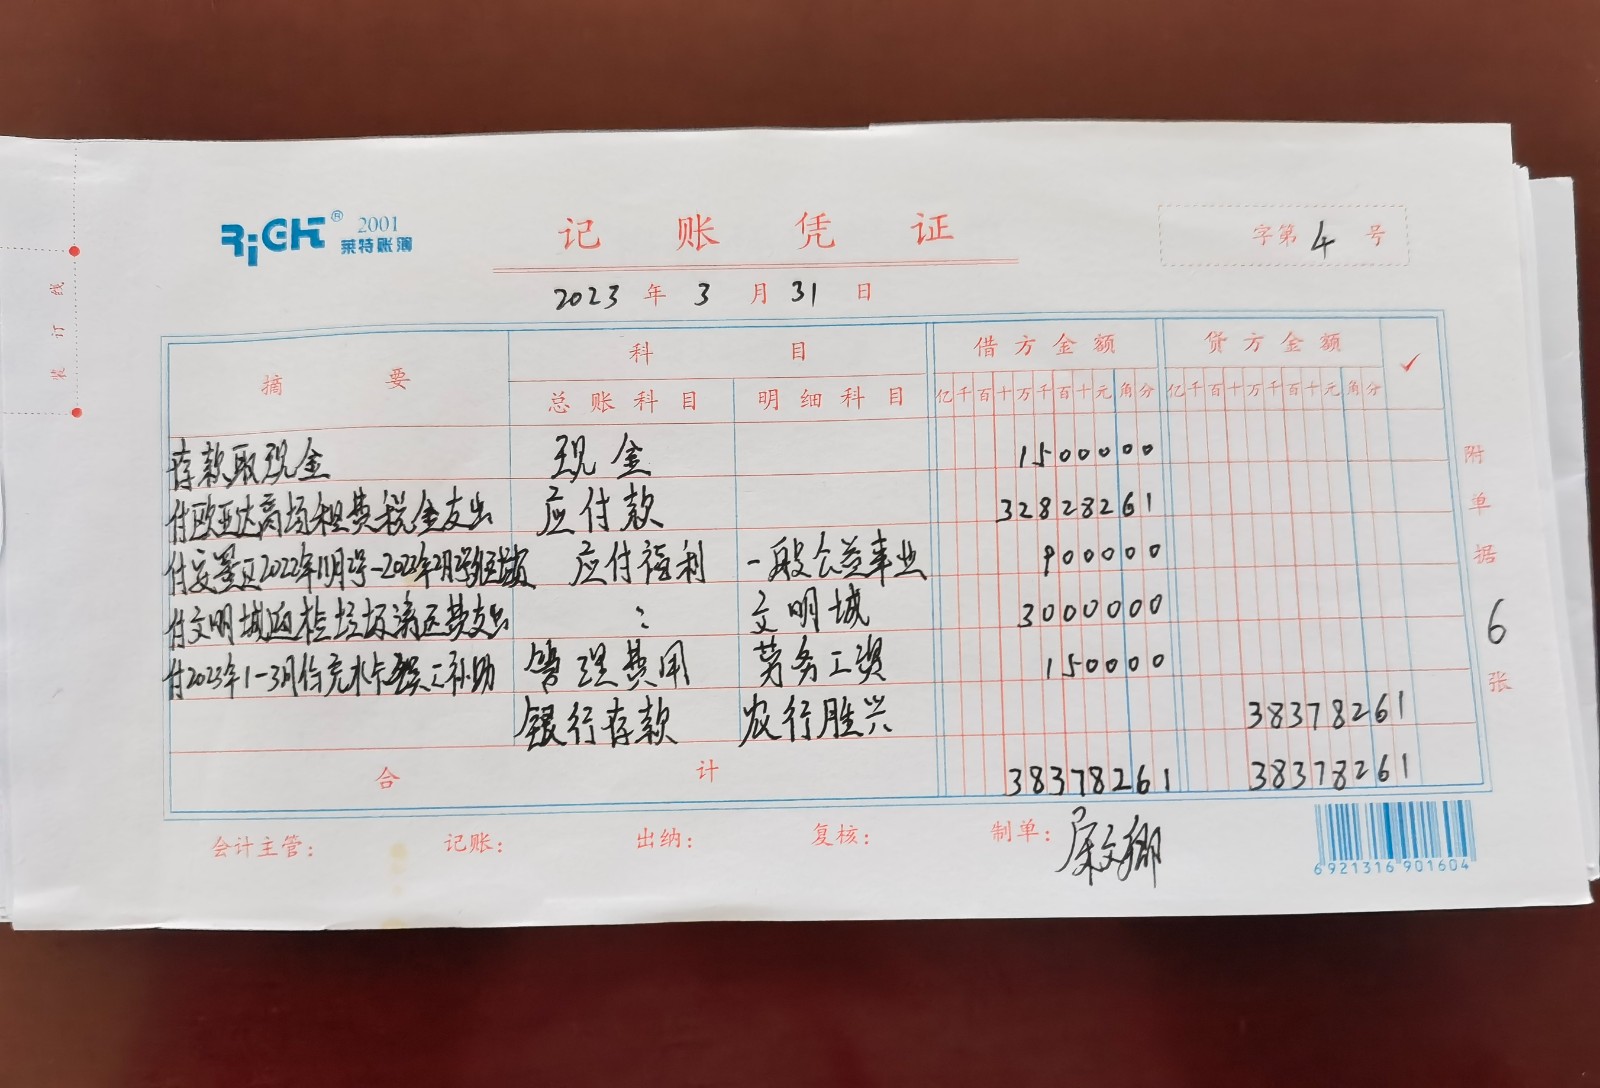 RiGHT® 2001
莱特账簿
记账凭证
字第 4 号
2023 年 3 月 31 日
装订线
摘要 科目 借方金额 贷方金额 ✓
总账科目 明细科目 亿千百十万千百十元角分 亿千百十万千百十元角分
存款取现金 现金 1500000
付欧亚达商场租费税金支出 应付款 32828261
付安置区2022年11月2号-2023年2月2号 应付福利 一般公益事业 900000
付文明城 垃圾清运费支出 : 文明城 3000000
付2023年1-3月份充水卡 补助 管理费用 劳务工资 150000
银行存款 农行胜兴 38378261
合计 38378261 38378261
附单据 6 张
会计主管: 记账: 出纳: 复核: 制单:
6921316901604